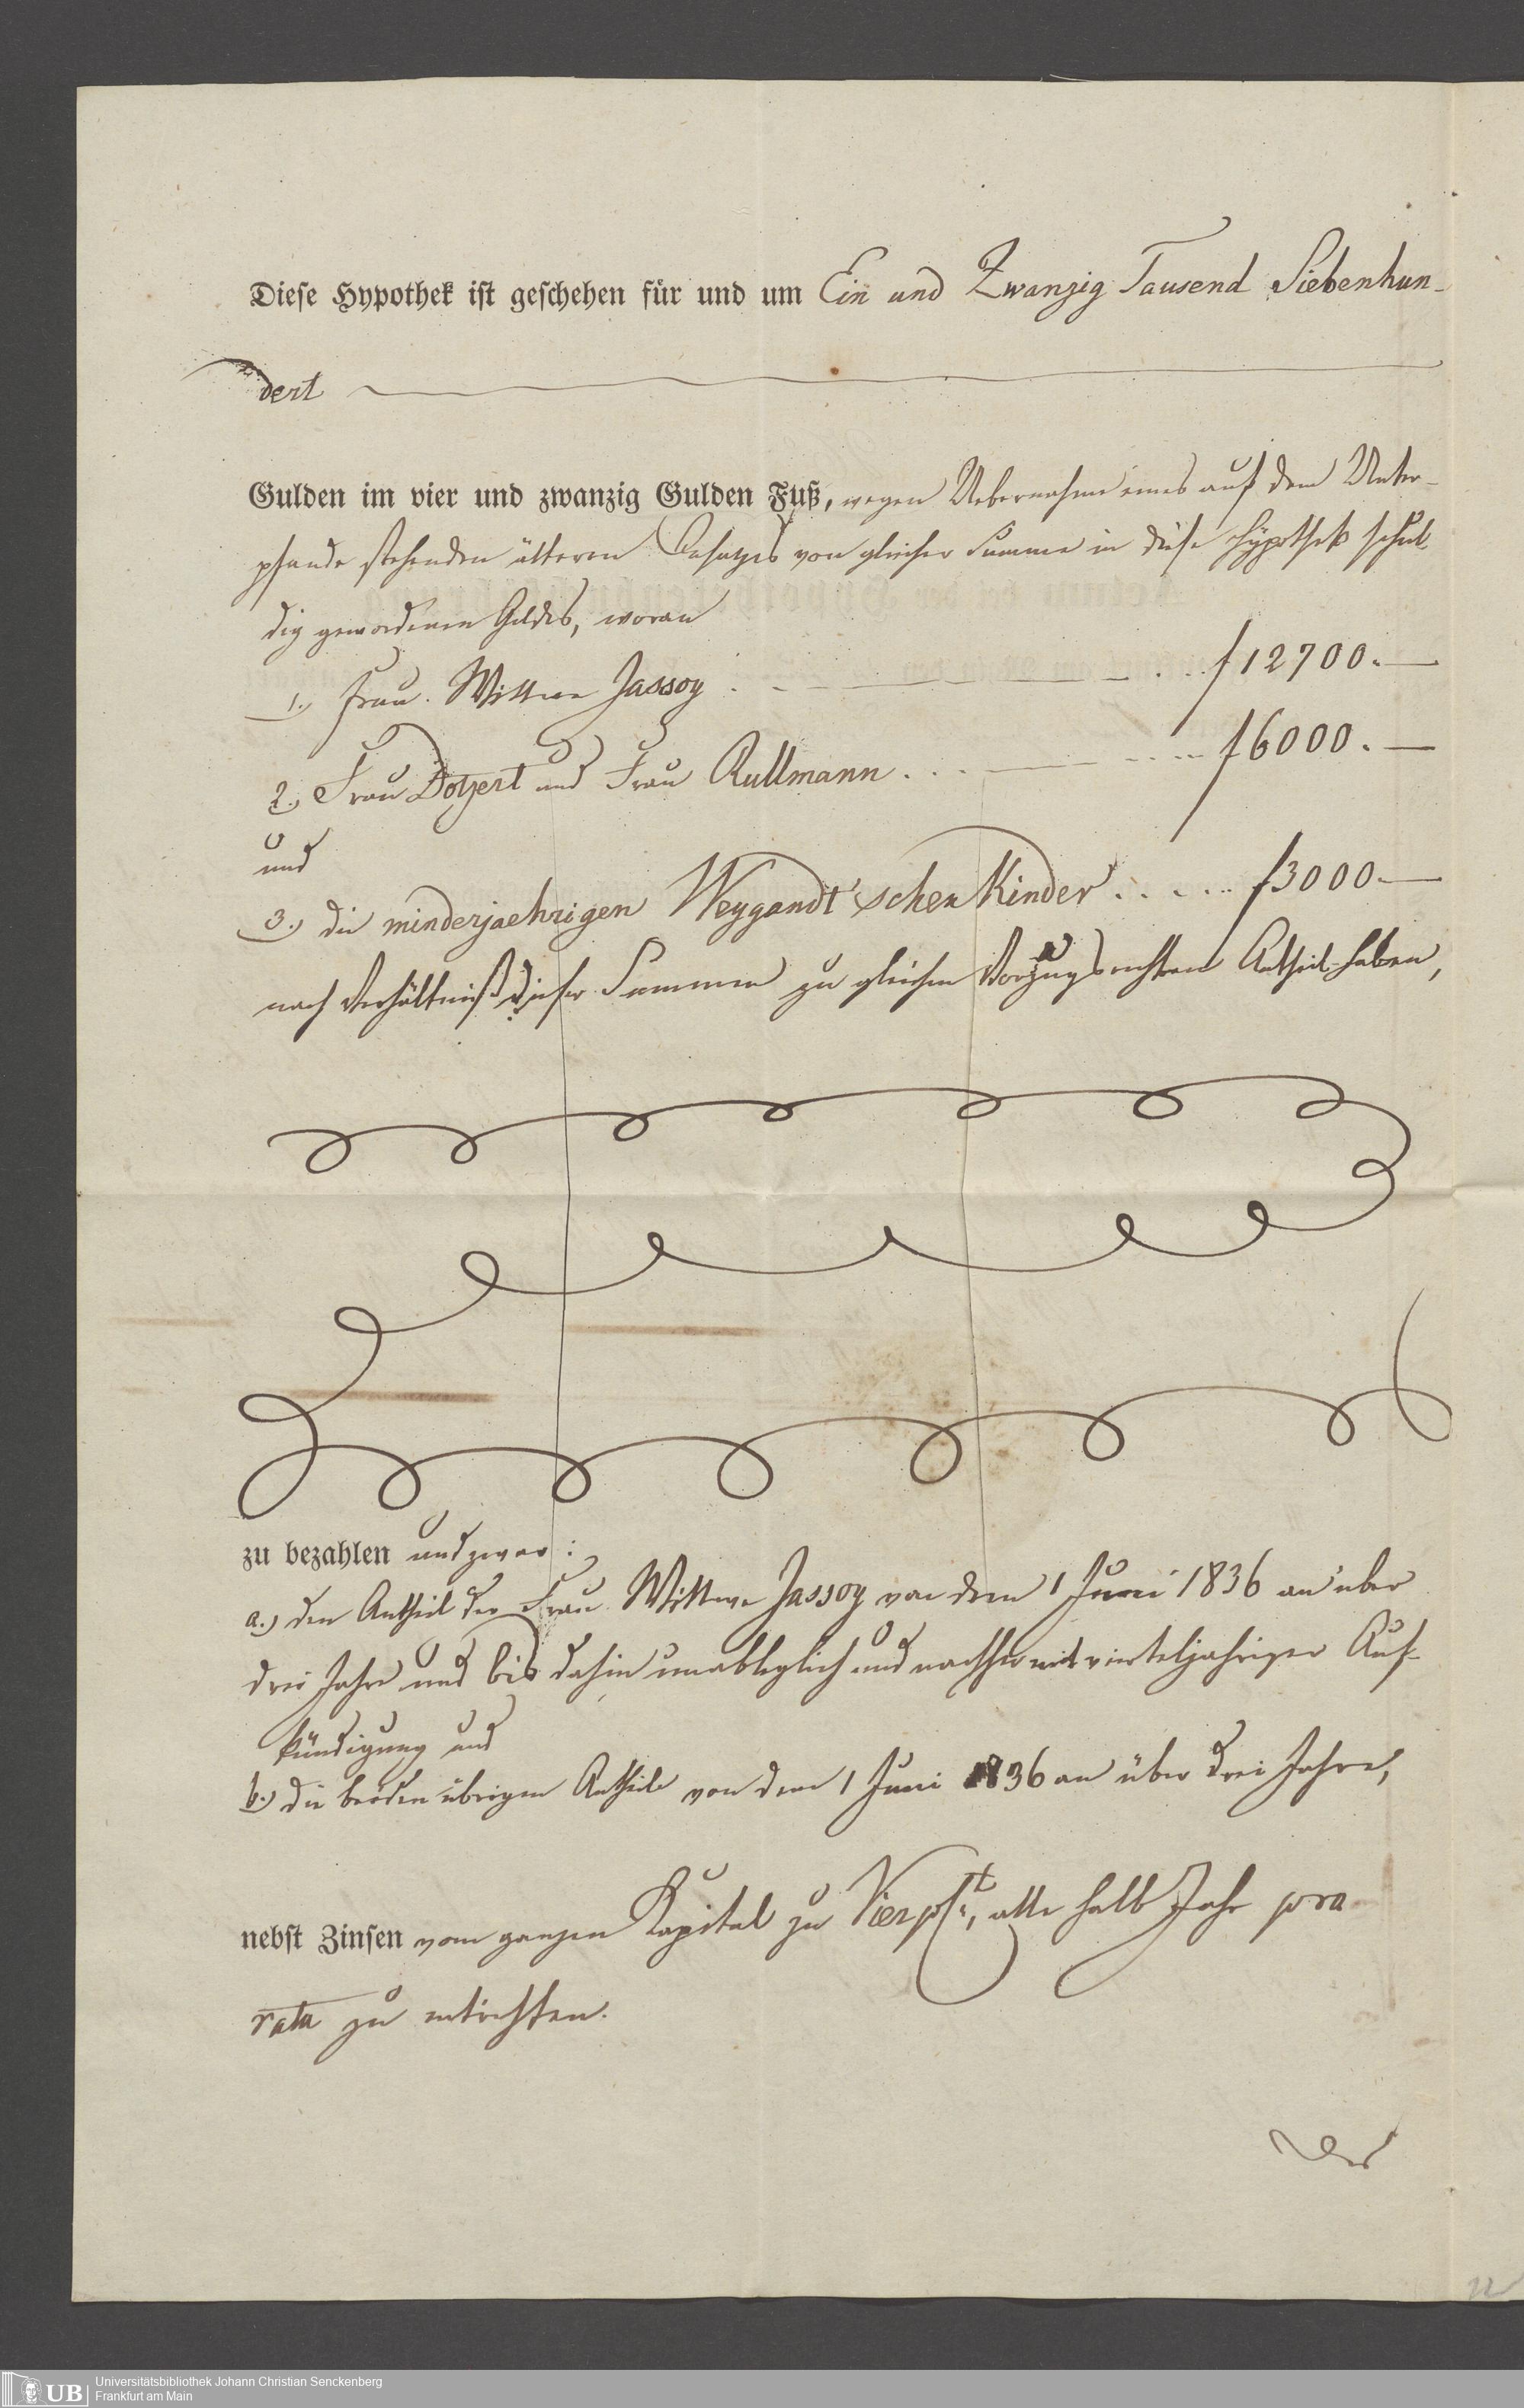 Diese Hypothek ist geschehen für und um Ein und Zwanzig Tausend Siebenhun-
dert
Gulden im vier und zwanzig Gulden Fuß, wegen Uebernahme eines auf dem Unter-
pfande stehenden älteren Besatzes von gleicher Summe in diese Hypothek schul
dig gewordenen Geldes, woran
1.) Frau Wittwe Jassoy . . . . . f 12700.—
2.) Frau Dotzert und Frau Rullmann . . . . . . f 6000.—
und
3.) die minderjaehrigen Weygandt'schen Kinder . . . . . f 3000—
nach Verhältniß dieser Summen zu gleichen Vorzugsrechten Antheil haben,
zu bezahlen und zwar:
a.) den Antheil der Frau Wittwe Jassoy von dem 1 Juni 1836 an über
drei Jahre und bis dahin unableglich und nachher mit vierteljahriger Auf-
kündigung und
b.) die beiden übrigen Antheile von dem 1 Juni 1836 an über drei Jahre,
nebst Zinsen vom ganzen Kapital zu Vier pCt., alle halb Jahr pro
rata zu entrichten.
Des
22
UB Universitätsbibliothek Johann Christian Senckenberg
Frankfurt am Main